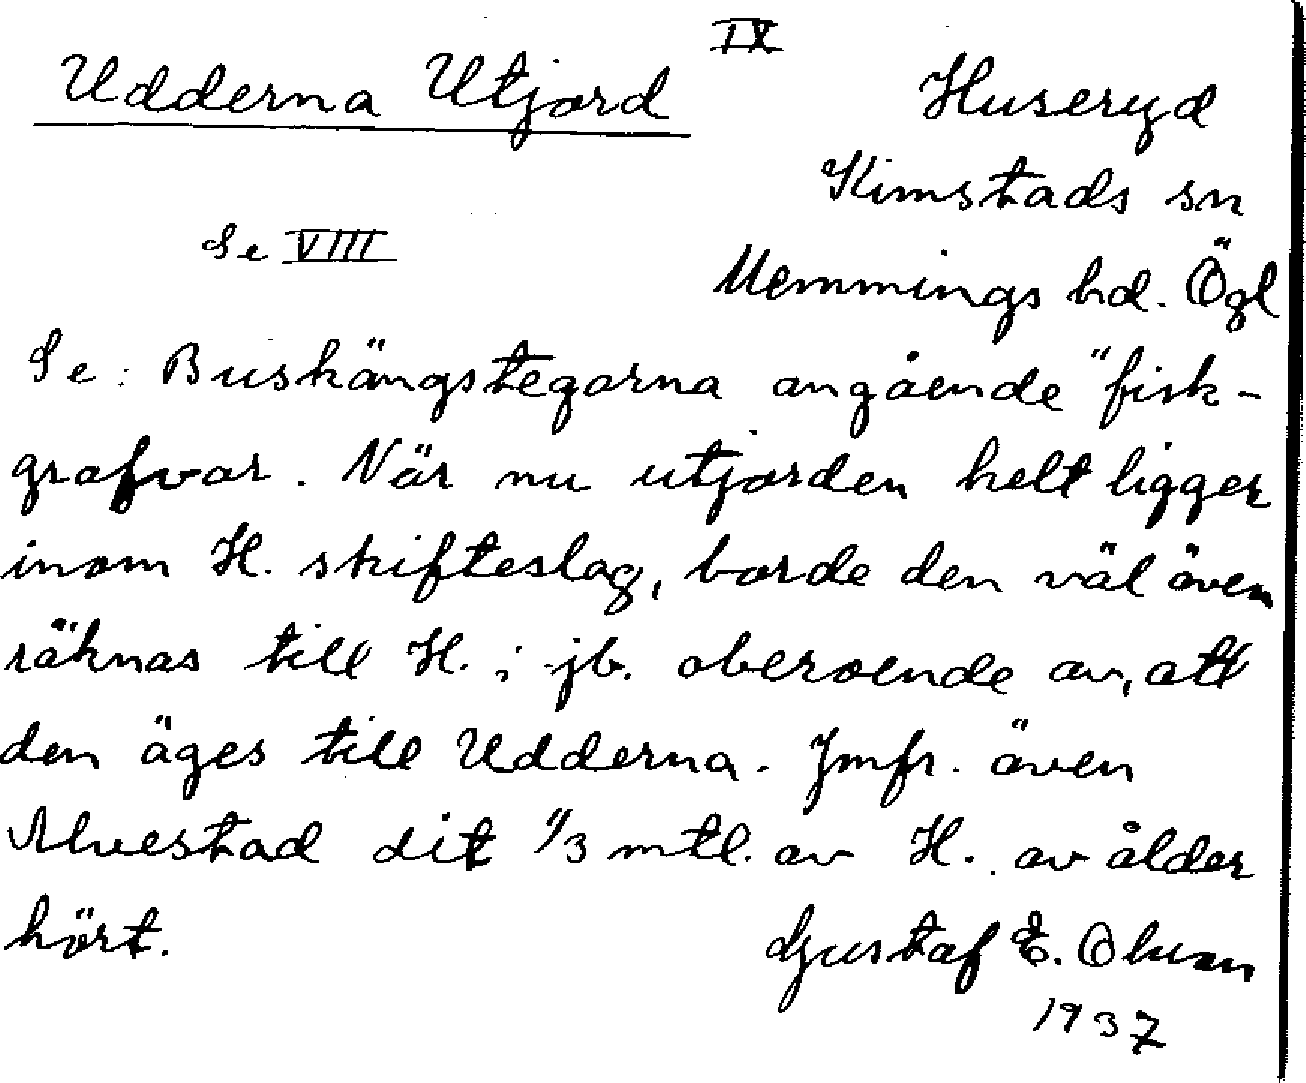 IX
Udderna Utjord
Huseryd
Kimstads sn
Se VIII
Memmings hd. Ögl
Se: Buskängstegarna angående "fisk-
grafvar. När nu utjorden helt ligger
inom H. skifteslag, borde den väl även
räknas till H. i jb. oberoende av, att
den äges till Udderna. Jmfr. även
Alvestad dit 1/3 mtl. av H. av ålder
hört.
Gustaf E. Olsson
1937